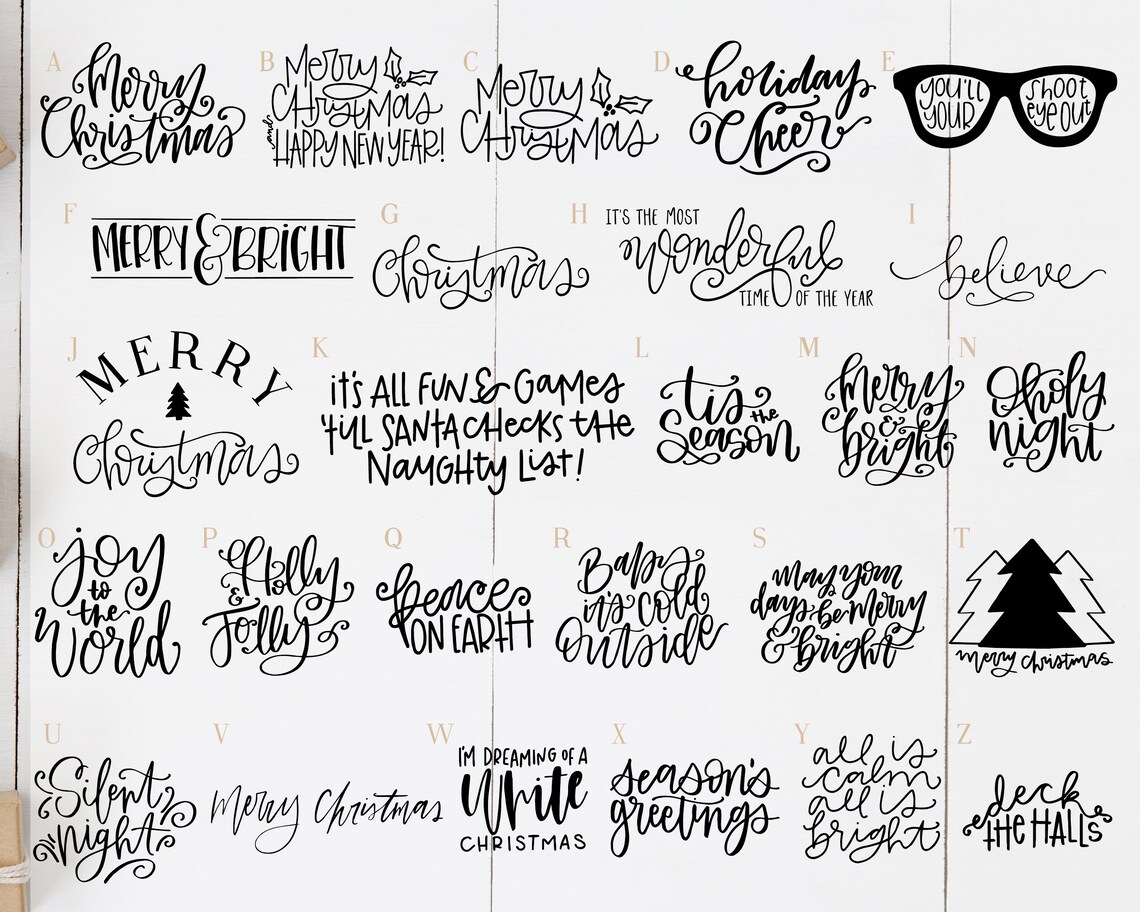 A
Merry
Christmas
B
Merry
Christmas
and
HAPPY NEW YEAR!
C
Merry
Christmas
D
holiday
Cheer
E
you'll
your
shoot
eye out
F
MERRY & BRIGHT
G
Christmas
H
IT'S THE MOST
Wonderful
TIME OF THE YEAR
I
believe
J
MERRY
Christmas
K
it's ALL FUN & Games
'till SANTA cHecks tHe
Naughty List!
L
'tis
the
Season
M
merry
&
bright
N
O holy
night
O
joy
to
the
World
P
Holly
&
Jolly
Q
Peace
ON EARTH
R
Baby
it's cold
Outside
S
May your
days be merry
& bright
T
merry christmas
U
Silent
night
V
Merry Christmas
W
I'M DREAMING OF A
White
CHRISTMAS
X
season's
greetings
Y
all is
calm
all is
bright
Z
deck
the HALLS